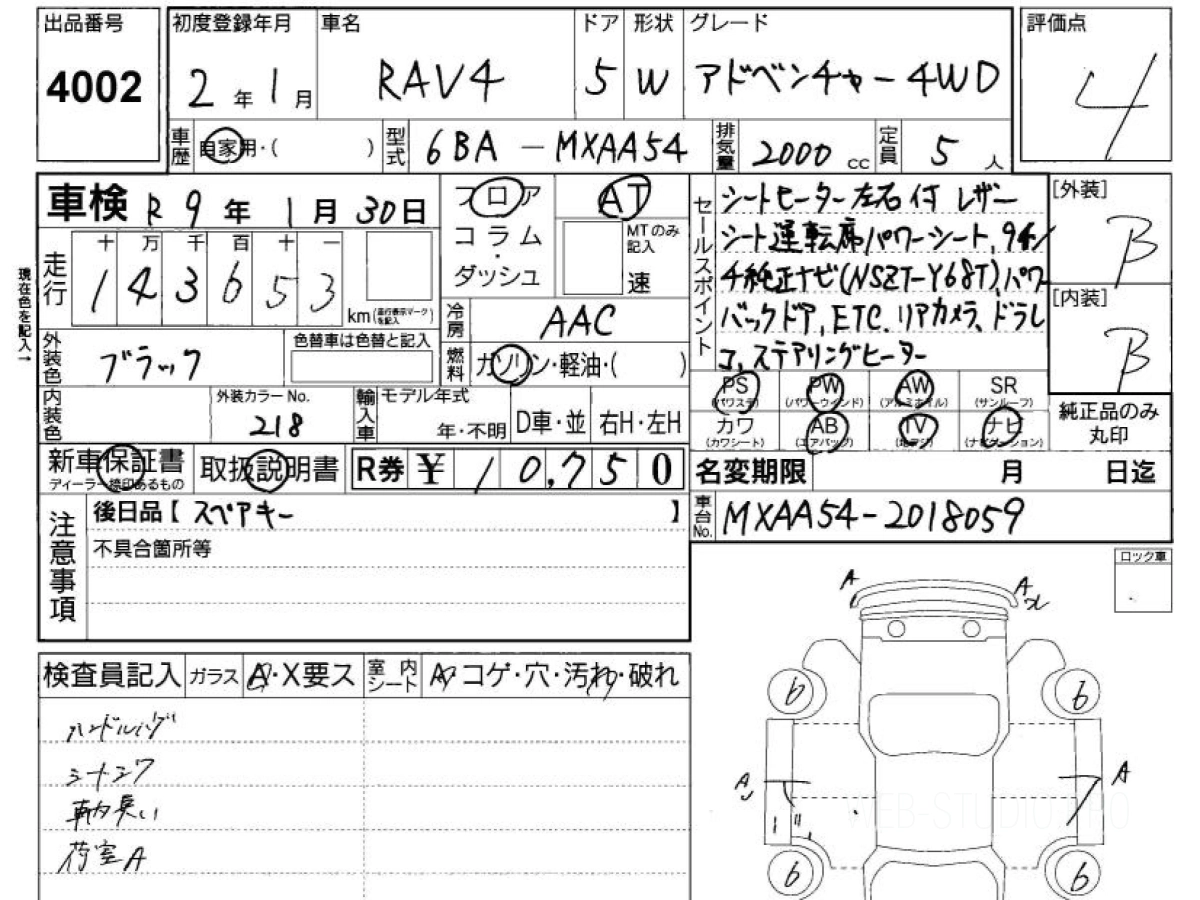 出品番号 初度登録年月 車名 ドア 形状 グレード 評価点
4002 2年1月 RAV4 5 W アドベンチャー4WD 4
車歴 自家用・( ) 型式 6BA-MXAA54 排気量 2000cc 定員 5人
車検 R9年1月30日 フロア AT セールスポイント シートヒーター左右付 レザー [外装]
コラム・ MTのみ記入 シート運転席パワーシート、9イン B
走行 十 万 千 百 十 一 ダッシュ 速 チ純正ナビ(NSZT-Y68T)、パワー [内装]
現在色を記入→ 1 4 3 6 5 3 km(走行表示マークを記入) 冷房 AAC バックドア、ETC、リアカメラ、ドラレ B
外装色 ブラック 色替車は色替と記入 燃料 ガソリン・軽油・( ) コ、ステアリングヒーター
内装色 外装カラーNo. 218 輸入車 モデル年式 年・不明 D車・並 右H・左H
PS PW AW SR
(パワステ) (パワーウインド) (アルミホイル) (サンルーフ)
カワ AB TV ナビ 純正品のみ丸印
(カワシート) (エアバッグ) (地デジ) (ナビゲーション)
新車保証書 取扱説明書 R券 ¥ 10,750 名変期限 月 日迄
ディーラー捺印あるもの
注意事項 後日品【 スペアキー 】 車台No. MXAA54-2018059
不具合箇所等
ロック車
A A
検査員記入 ガラス A・X要ス 室内シート A・コゲ・穴・汚れ・破れ
6 6
シナシワ
A A
荷室A
WEB-STUDIO.PRO
6 6